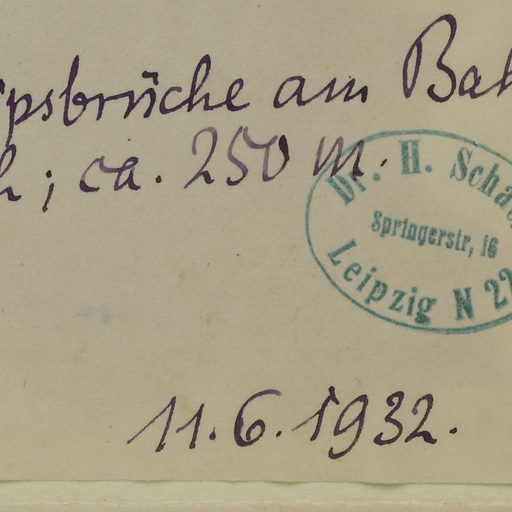 ipsbrüche am Bah
h; ca. 250 m.
Dr. H. Schae
Springerstr. 16
Leipzig N 22
11.6.1932.